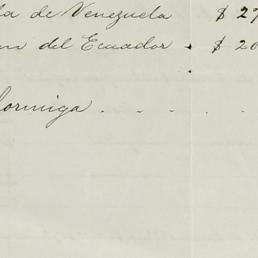 la de Venezuela $ 27
an del Ecuador . $ 20
ormiga . . . .